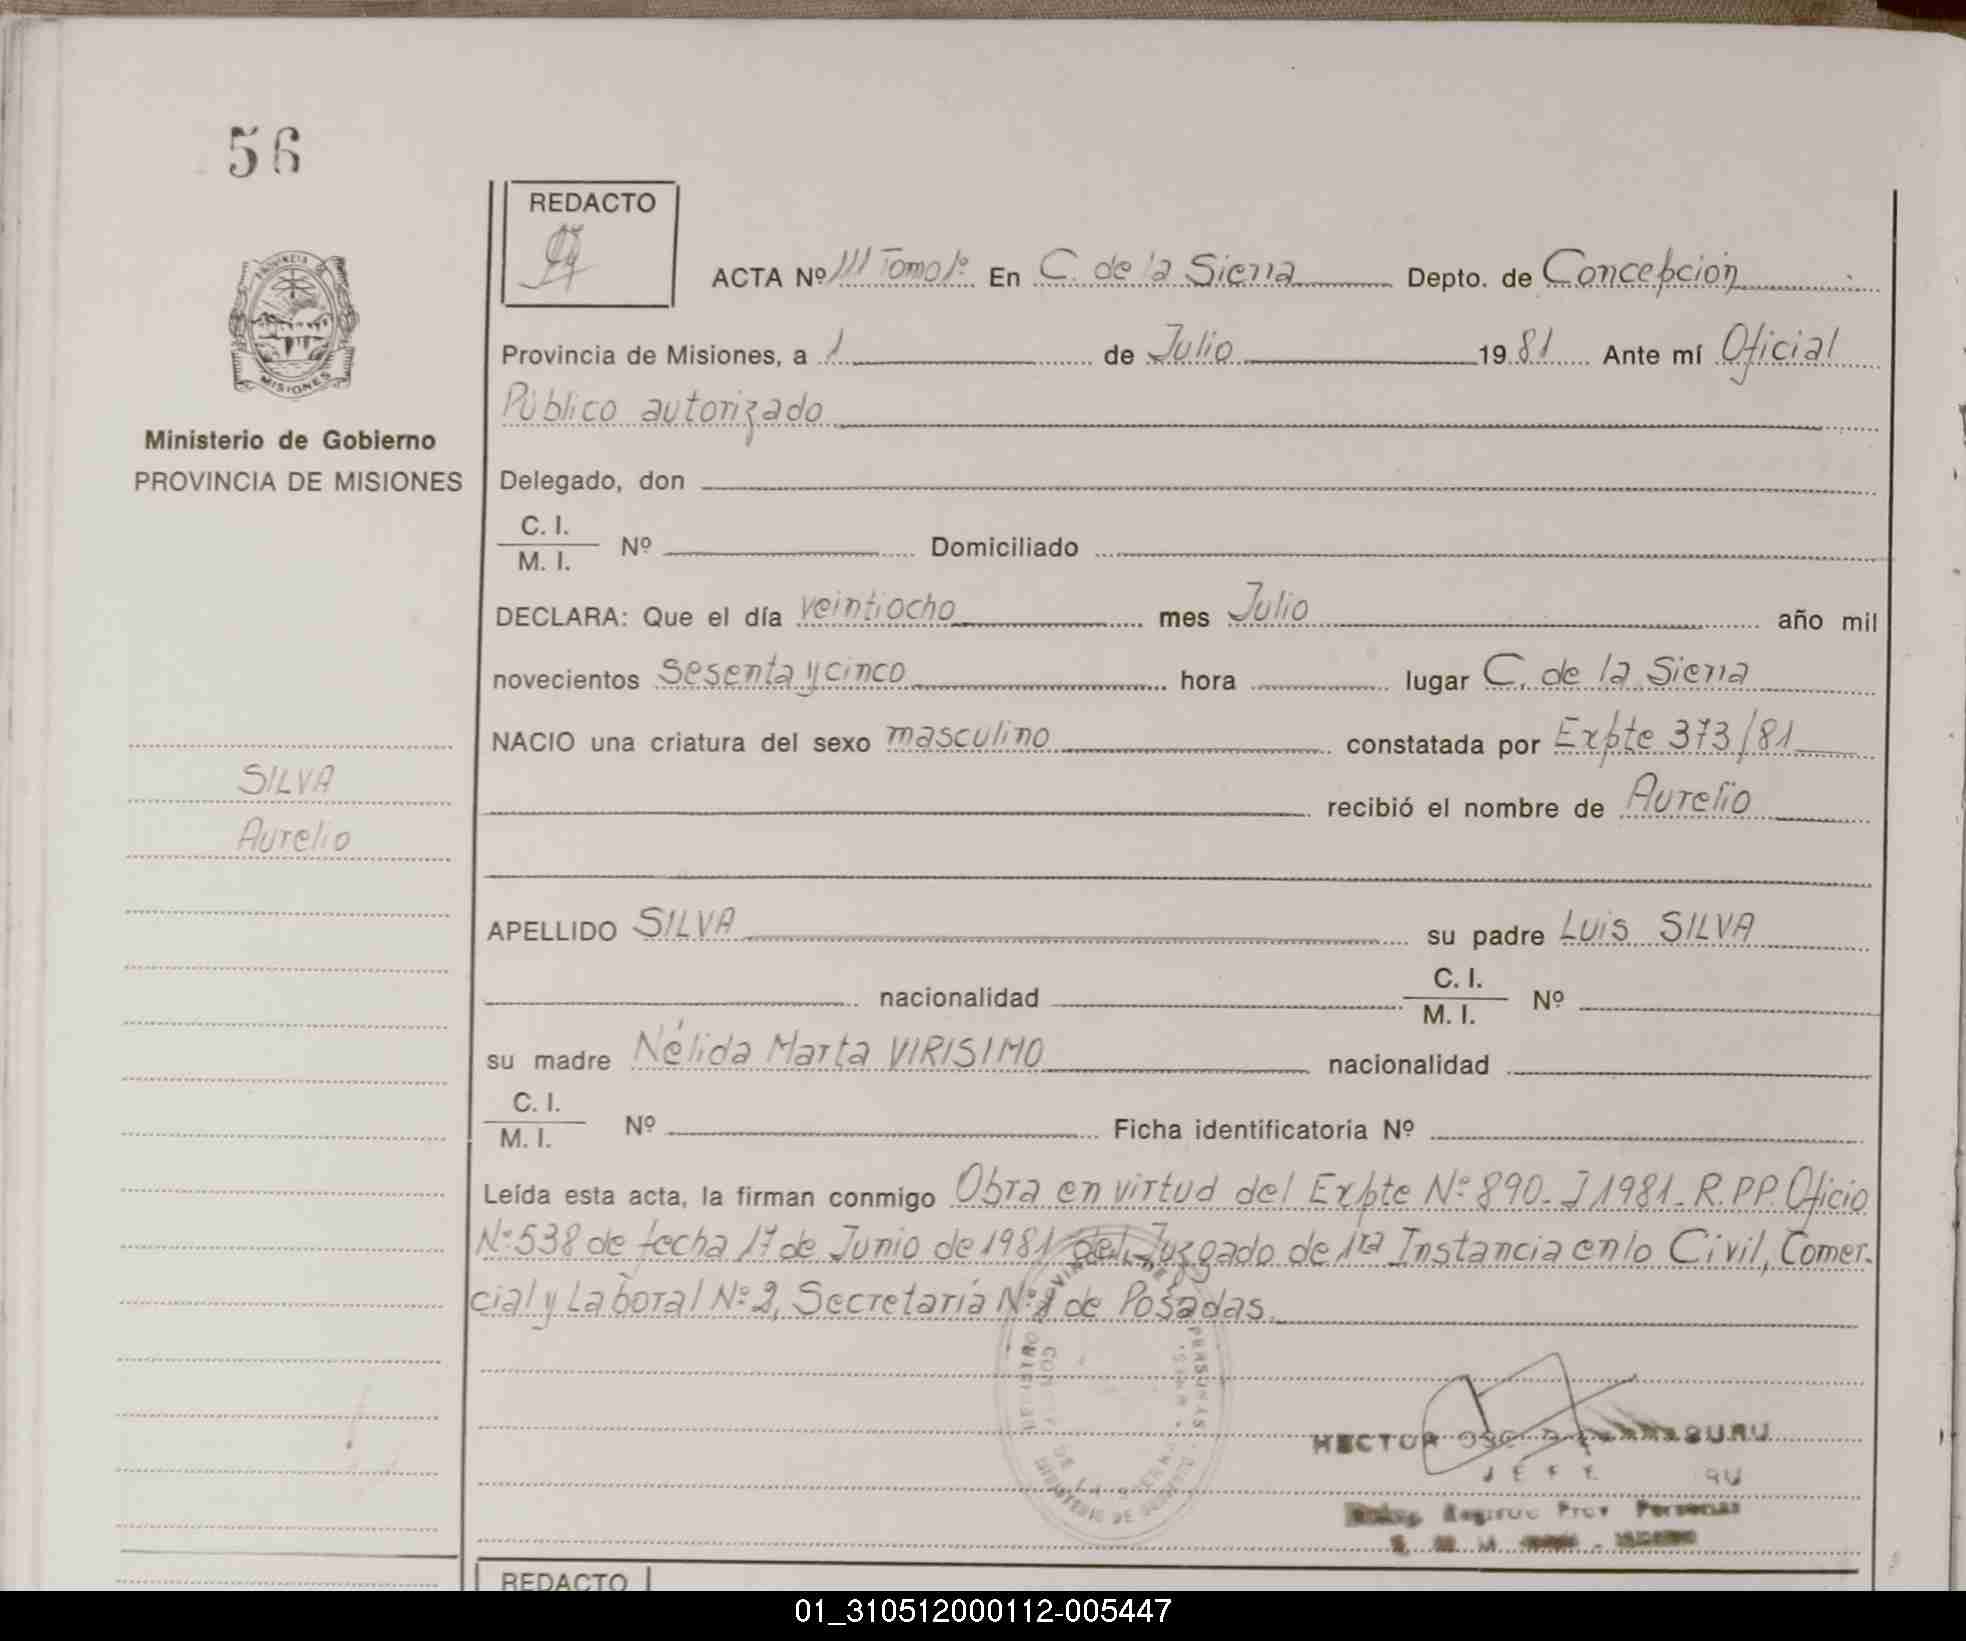 56
PROVINCIA DE
MISIONES
Ministerio de Gobierno
PROVINCIA DE MISIONES
SILVA
Aurelio
REDACTO
ACTA Nº 111 Tomo 1º En C. de la Sierra Depto. de Concepción
Provincia de Misiones, a 1 de Julio 1981 Ante mí Oficial
Público autorizado
Delegado, don
C. I.
M. I. Nº Domiciliado
DECLARA: Que el día veintiocho mes Julio año mil
novecientos sesenta y cinco hora lugar C. de la Sierra
NACIO una criatura del sexo masculino constatada por Expte 373/81
recibió el nombre de Aurelio
APELLIDO SILVA su padre Luis SILVA
nacionalidad C. I.
M. I. Nº
su madre Nélida Marta VIRISIMO nacionalidad
C. I.
M. I. Nº Ficha identificatoria Nº
Leída esta acta, la firman conmigo Obra en virtud del Expte Nº 890-J 1981-R.P.P. Oficio
Nº 538 de fecha 17 de Junio de 1981 del Juzgado de 1ra Instancia en lo Civil, Comer-
cial y Laboral Nº 2, Secretaría Nº de Posadas.
HECTOR
JEFE
Prov Personas
REDACTO
01_310512000112-005447